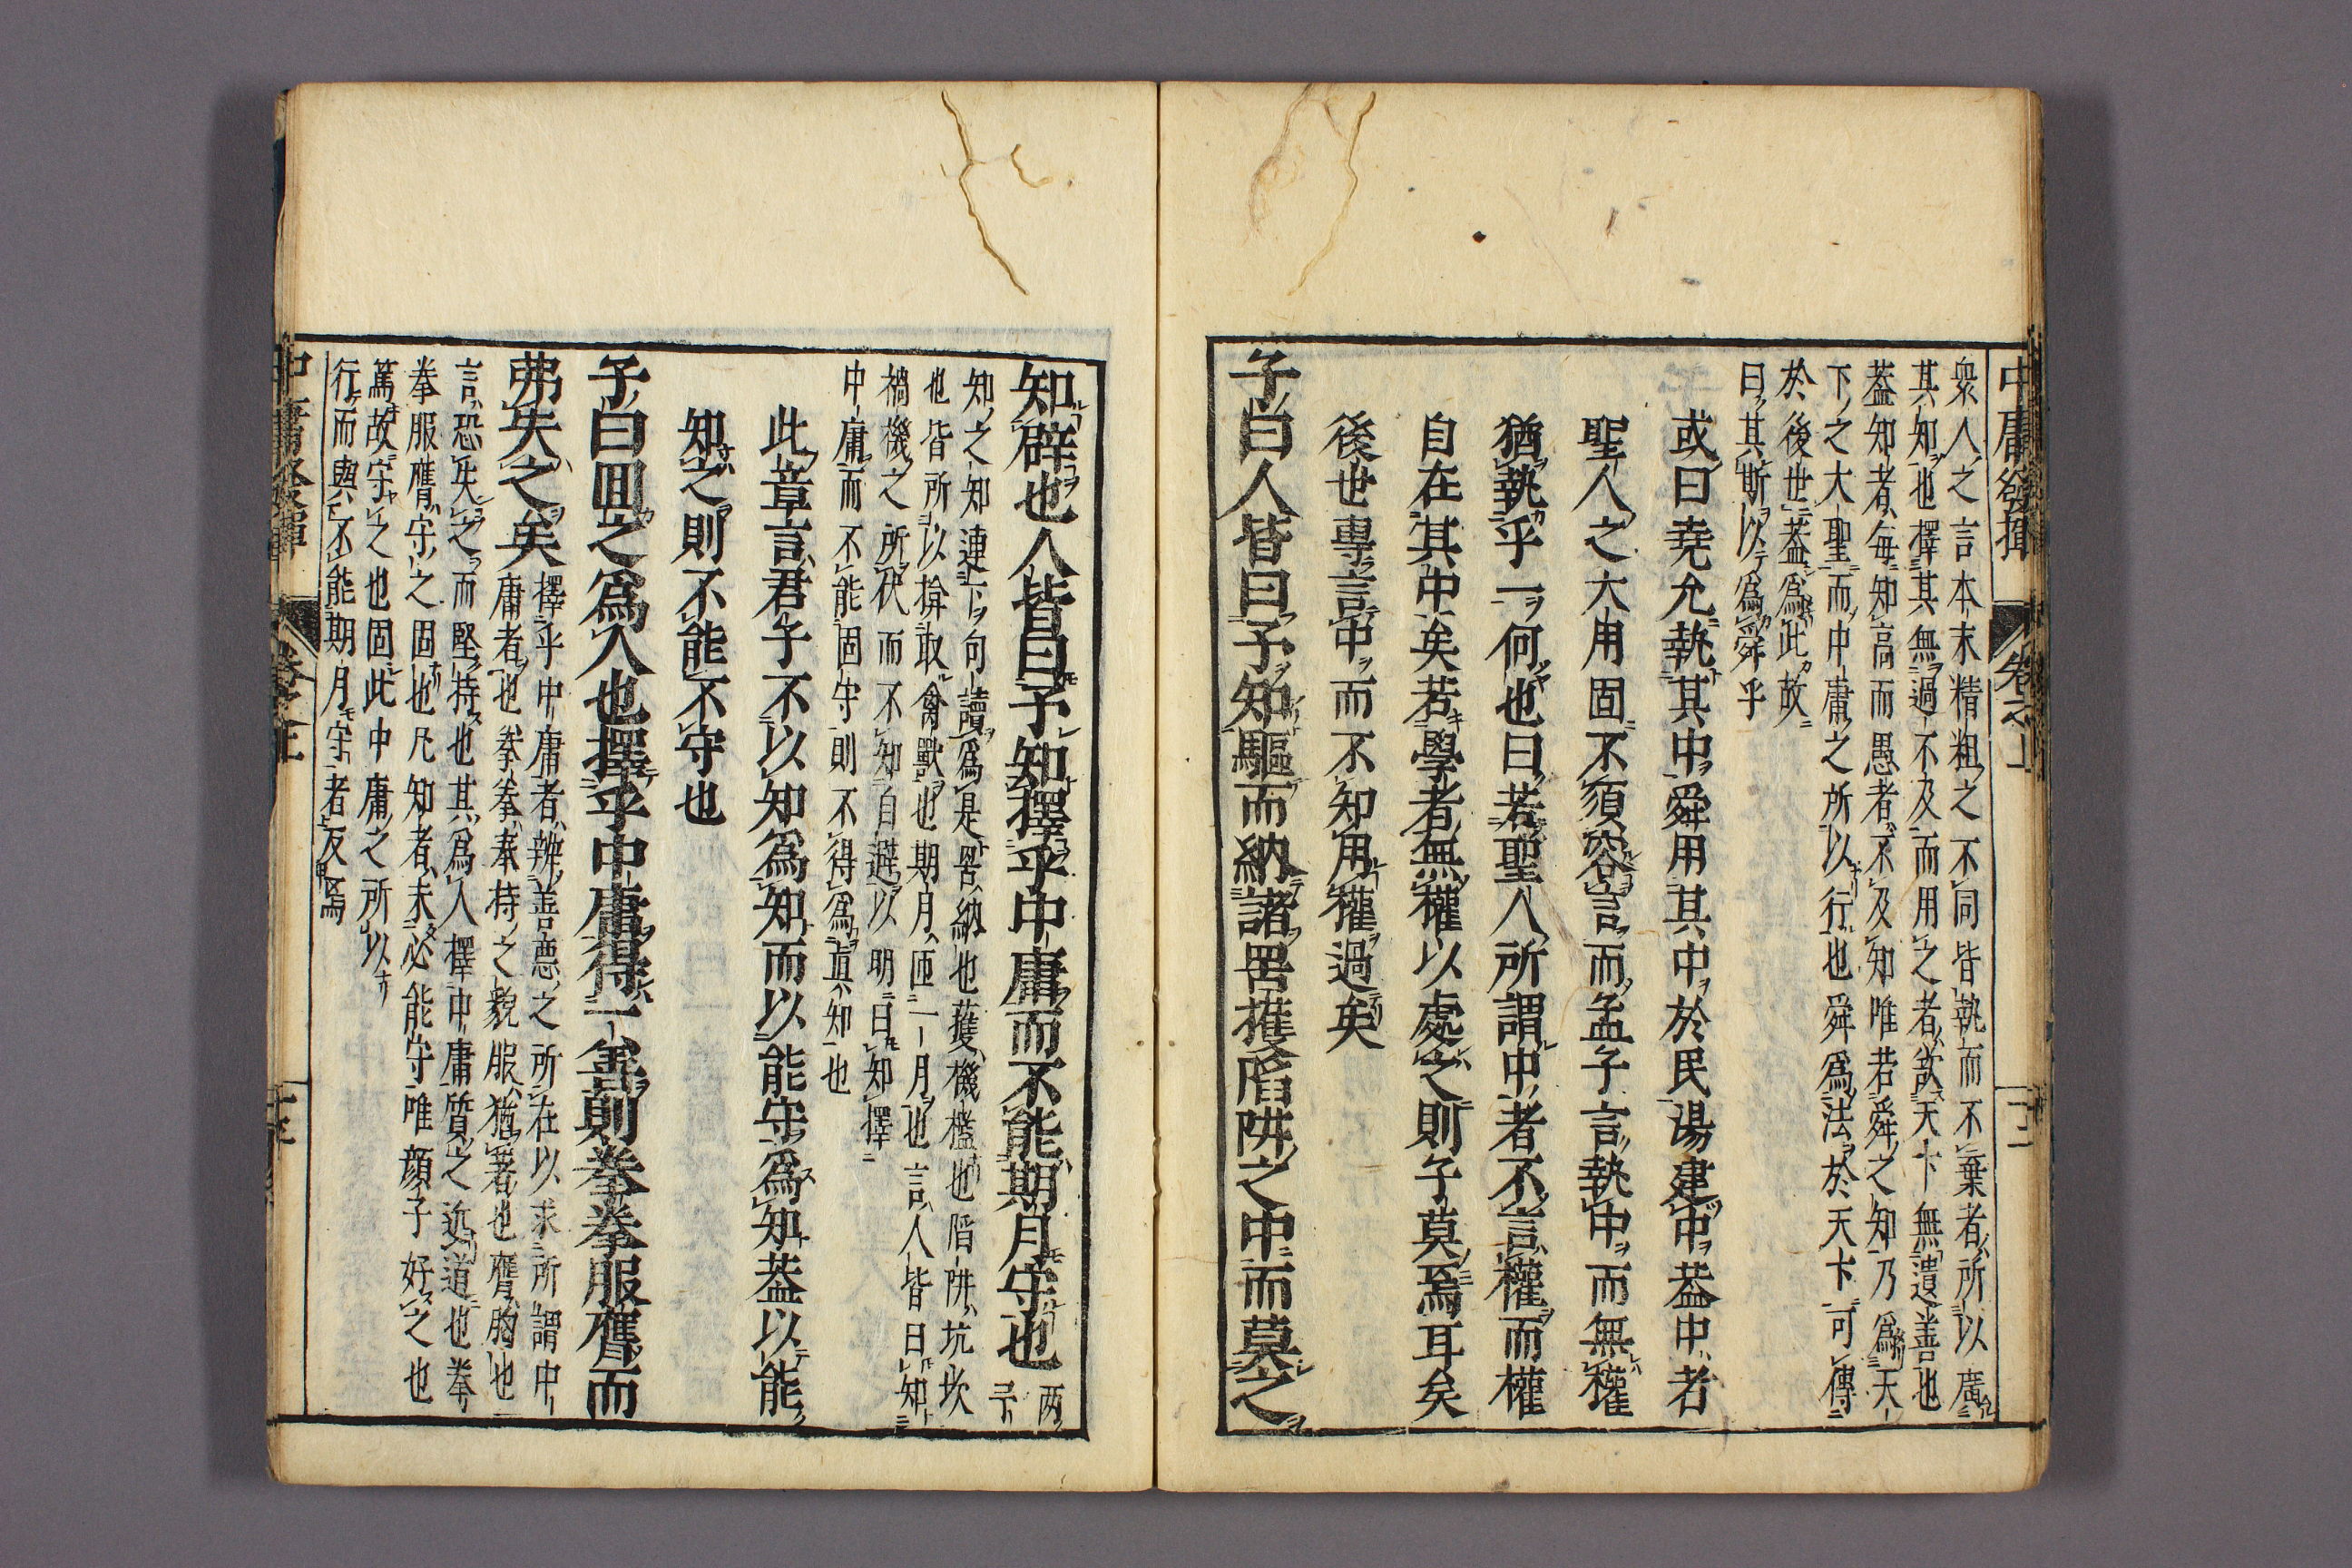 衆人之言本末精粗之不同皆執而不棄者所以廣
其知也擇其無過不及而用之者欲天下無遺善也
蓋知者每知高而愚者不及知唯若舜之知乃爲天
下之大聖而中庸之所以行也舜爲法於天下可傳
於後世蓋爲此故
曰其斯以爲舜乎
或曰堯允執其中舜用其中於民湯建中蓋中者
聖人之大用固不須容言而孟子言執中而無權
猶執乎一何也曰若聖人所謂中者不言權而權
自在其中矣若學者無權以處之則子莫焉耳矣
後世專言中而不知用權過矣
子曰人皆曰予知驅而納諸罟擭陷阱之中而莫之
知辟也人皆曰予知擇乎中庸而不能期月守也 兩予
知之知連下句讀爲是罟納也擭機檻也陷阱坑坎
也皆所以揜取禽獸也期月匝一月也言人皆曰知
禍機之所伏而不知自避以明曰知擇
中庸而不能固守則不得爲眞知也
此章言君子不以知爲知而以能守爲知蓋以能
知之則不能不守也
子曰回之爲人也擇乎中庸得一善則拳拳服膺而
弗失之矣 擇乎中庸者辨善惡之所在以求所謂中
庸者也拳拳奉持之貌服猶著也膺胸也
言恐失之而堅持也其爲人擇中庸質之近道也拳
拳服膺守之固也凡知者未必能守唯顏子好之也
篤故守之也固此中庸之所以
行而與不能期月守者反焉
中庸發揮 卷之上 十二
中庸發揮 卷之上